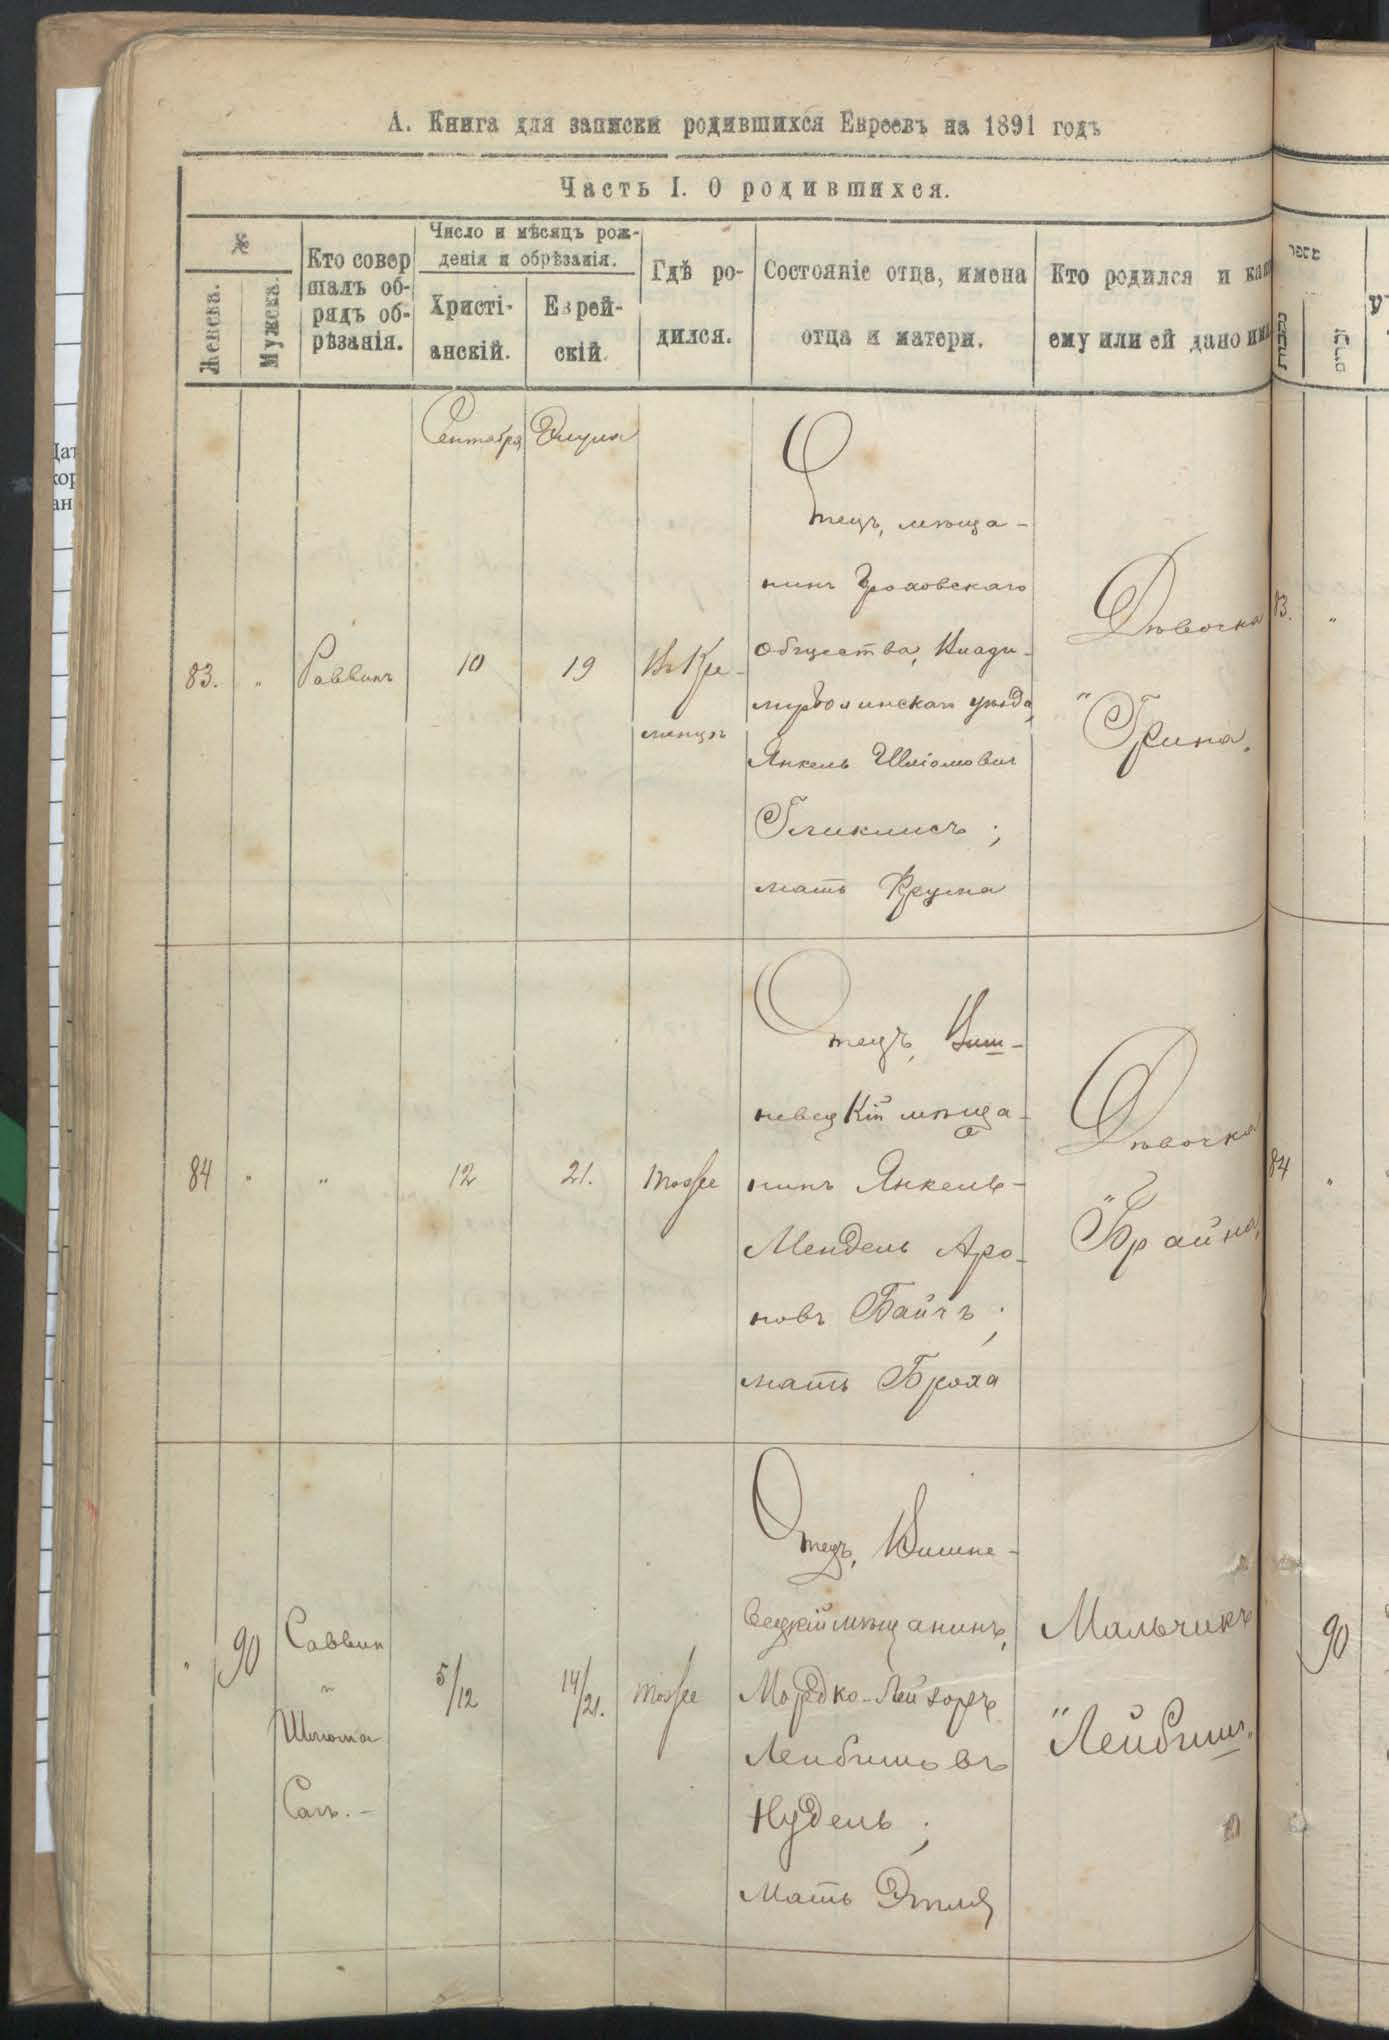 А. Книга для записки родившихся Евреевъ на 1891 годъ
Часть I. О родившихся.
№
Женска.
Мужска.
Кто совер
шалъ об-
рядъ об-
рѣзанія.
Число и мѣсяцъ рож-
денія и обрѣзанія.
Христі-
анскій.
Еврей-
скій.
Гдѣ ро-
дился.
Состояніе отца, имена
отца и матери.
Кто родился и како
ему или ей дано им
מספר
נקבות
זכרים
Сентября
Элула
83.
"
Раввинъ
10
19
Въ Кре-
менцѣ
Отецъ, мѣща-
нинъ
общества, Влади-
мірволинскаго уѣзда,
Янкель Шліомович
Гликлисъ;
мать Фрума
Дѣвочка
"Грина.
84
"
"
12
21.
тоже
Отецъ, Виш-
невецкій мѣща-
нинъ Янкель-
Мендель Аро-
новъ Байчъ;
мать Броха
Дѣвочка
"Брайна,
"
90
Саввин
и
Шлиома
Сагъ.-
5/12
14/21.
тоже
Отецъ, Вишне-
вецкій мѣщанинъ,
Мордко-Лейзоръ
Лейбишовъ
Нудель;
Мать Этля
Мальчикъ
"Лейбиш".
83.
"
84
"
90